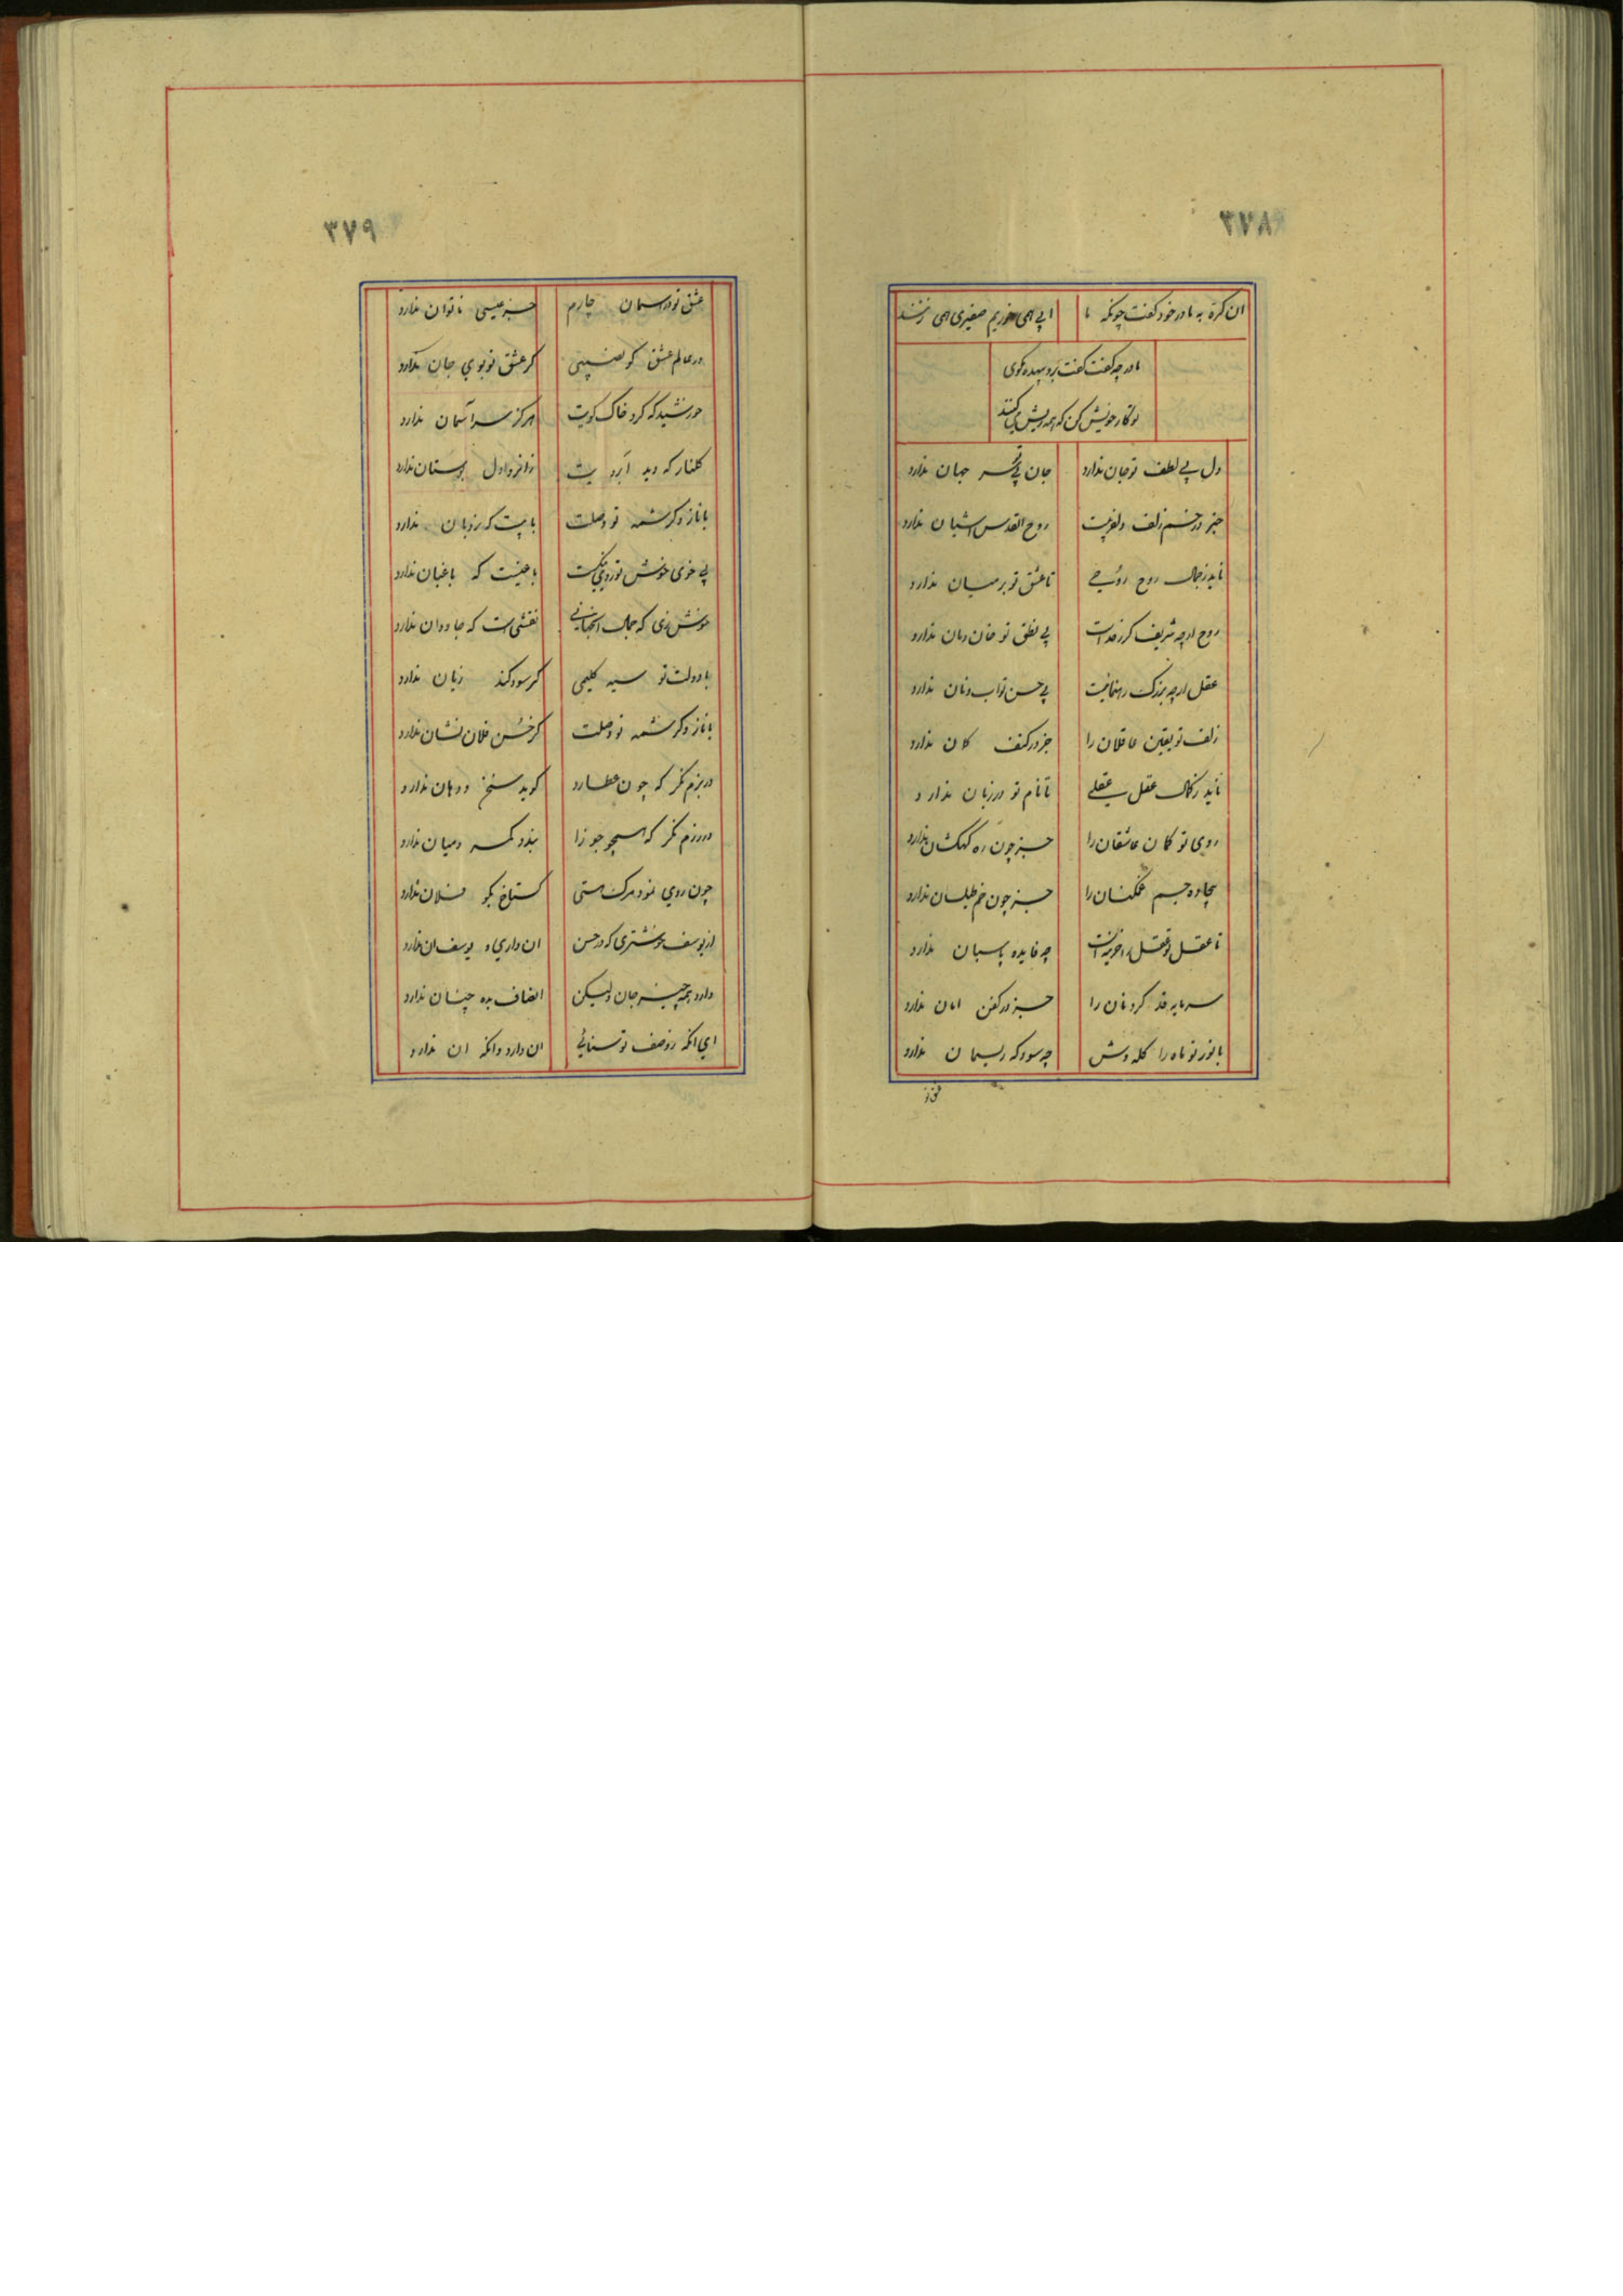 ۳۷۸
ان کره به مادر خود گفت چونکه ما ابی همی خوریم صفیری همی زنند
مادر چه گفت گفت برو بیهده مگوی
تو کار خویش کن که همه ریش می کنند
دل بی لطف تو جان ندارد جان بی تو سر جهان ندارد
جز در خم زلف دلفریبت روح القدس اشیان ندارد
ناید ز جمال روح روحی تا عشق تو بر میان ندارد
روح ارچه شریف کرد خداست بی نطق تو خان و مان ندارد
عقل ارچه بزرگ رهنمایست بی حسن تو اب و نان ندارد
زلف تو یقین عاقلان را جز در کنف کمان ندارد
ناید ز کمال عقل عقلی تا نام تو در زبان ندارد
روی تو کمان عاشقان را جز چون ره کهکشان ندارد
بیجاده جسم غمکنان را جز چون خم طیلسان ندارد
تا عقل تو قفل چه فایده پاسبان ندارد
سرمایه قد کرد نان را جز در کفن امان ندارد
با نوز تو ماه را کله وش چه سود که ریسمان ندارد
۳۷۹
عشق تو در اسمان چارم جز عیسی ناتوان ندارد
در عالم عشق کو نشینی کر عشق تو بوی جان ندارد
خورشید که کرد خاک کویت هرکز سر آسمان ندارد
کلنار که دید آبرویت زانرو دل بوستان ندارد
با ناز و کرشمه تو وصلت بامیست که نردبان ندارد
بی خوی خوش تو روی نیکت باغیست که باغبان ندارد
خوش زی که جمال اینجهانی نقشی است که جاودان ندارد
با دولت تو سیه کلیمی کر سود کند زیان ندارد
با ناز و کرشمه تو وصلت کر حسن فلان نشان ندارد
در بزم نکر که چون عطارد کوید سخن و دهان ندارد
در رزم نکر که همچو جوزا بندد کمر و میان ندارد
چون روی نمود مرک هستی کستاخ بکو فلان ندارد
از یوسف خوشتری که در حسن ان داری و یوسف ان ندارد
دارد همه چیز جان ولیکن انصاف بده چنان ندارد
ای انکه ز وصف تو سنائی ان دارد و انکه ان ندارد